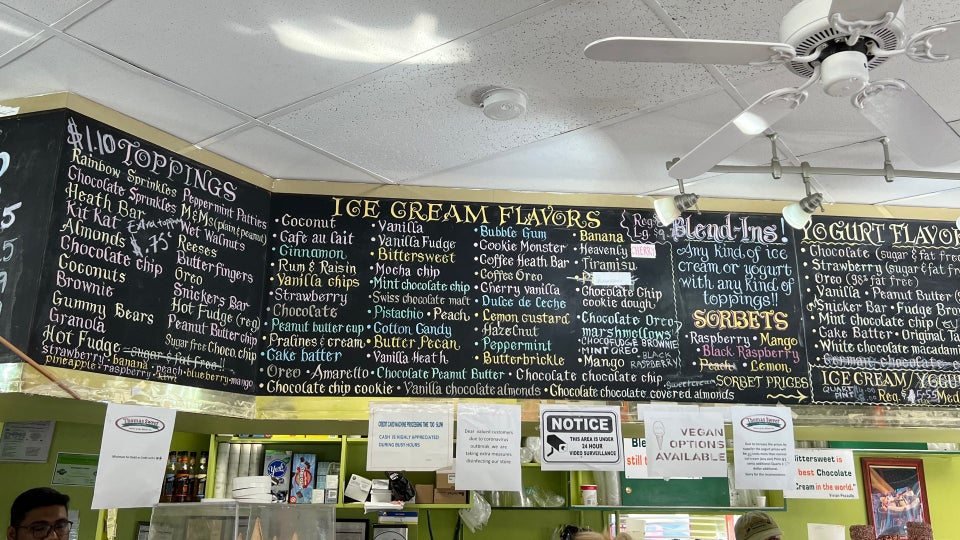 $1.10 TOPPINGS
Rainbow Sprinkles
Chocolate Sprinkles
Heath Bar
Kit Kat
Almonds
Chocolate chip
Coconuts
Brownie
Gummy Bears
Granola
Hot Fudge
Extra topping
$.75¢
Peppermint Patties
M&Ms (plain/peanut)
Wet Walnuts
Reeses
Butterfingers
Oreo
Snickers Bar
Hot Fudge (reg)
Peanut Butter chip
Sugar free Choco. chip
strawberry · banana · peach · blueberry · mango
pineapple · raspberry · kiwi
ICE CREAM FLAVORS
· Coconut
· Cafe au lait
· Cinnamon
· Rum & Raisin
· Vanilla chips
· Strawberry
· Chocolate
· Peanut butter cup
· Pralines & cream
· Cake batter
· Vanilla
· Vanilla Fudge
· Bittersweet
· Mocha chip
· Mint chocolate chip
· Swiss chocolate malt
· Pistachio · Peach
· Cotton Candy
· Butter Pecan
· Vanilla Heath
· Bubble Gum
· Cookie Monster
· Coffee Heath Bar
· Coffee Oreo
· Cherry vanilla
· Dulce de Leche
· Lemon custard
· Hazelnut
· Peppermint
· Butterbrickle
· Banana
· Heavenly
· Tiramisu
· Chocolate Chip
cookie dough
· Chocolate Oreo
marshmellows
· CHOCOFUDGE BROWNIE
· MINT OREO
· Mango
BLACK
RASPBERRY
· Oreo · Amaretto · Chocolate Peanut Butter · Chocolate chocolate chip
· Chocolate chip cookie · Vanilla chocolate almonds · Chocolate chocolate covered almonds
Blend-Ins!
Any kind of ice
cream or yogurt
with any kind of
toppings!!
SORBETS
· Raspberry · Mango
· Black Raspberry
· Peach · Lemon
SORBET PRICES
YOGURT FLAVO
· Chocolate (sugar & fat fre
· Strawberry (sugar & fat fre
· Oreo (98% fat free)
· Vanilla · Peanut Butter
· Snicker Bar · Fudge Brow
· Mint Chocolate chip
· Cake Batter · Original Ta
· White chocolate macadami
· Germane chocolate
ICE CREAM/YOGU
Thomas Sweet
CREDIT CARD MACHINE PROCESSING TIME TOO SLOW
CASH IS HIGHLY APPRECIATED
DURING BUSY HOURS
Dear valued customers
due to coronavirus
outbreak, we are
taking extra measures
disinfecting our store
NOTICE
THIS AREA IS UNDER
24 HOUR
VIDEO SURVEILLANCE
VEGAN
OPTIONS
AVAILABLE
Thomas Sweet
Bittersweet is
best Chocolate
Cream in the world."